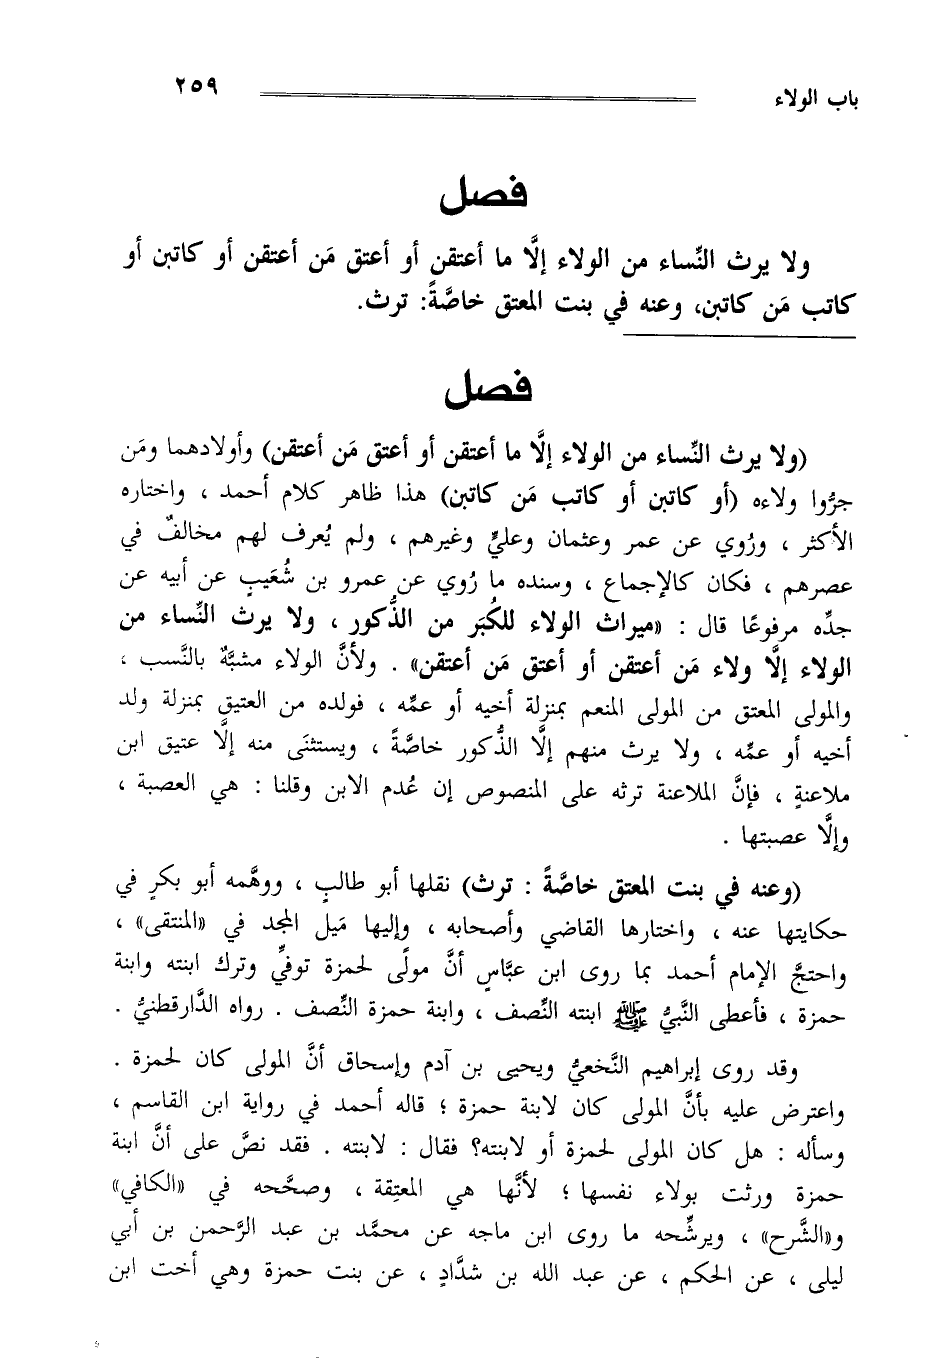 باب الولاء ٢٥٩
فصل
ولا يرث النِّساء من الولاء إلَّا ما أعتقن أو أعتق مَن أعتقن أو كاتبن أو
كاتب مَن كاتبن، وعنه في بنت المعتق خاصَّةً: ترث.
فصل
(ولا يرث النِّساء من الولاء إلَّا ما أعتقن أو أعتق مَن أعتقن) وأولادهما ومَن
جرُّوا ولاءه (أو كاتبن أو كاتب مَن كاتبن) هذا ظاهر كلام أحمد ، واختاره
الأكثر ، ورُوي عن عمر وعثمان وعليٍّ وغيرهم ، ولم يُعرف لهم مخالفٌ في
عصرهم ، فكان كالإجماع ، وسنده ما رُوي عن عمرو بن شُعَيبٍ عن أبيه عن
جدِّه مرفوعًا قال : «ميراث الولاء للكُبَر من الذُّكور ، ولا يرث النِّساء من
الولاء إلَّا ولاء مَن أعتقن أو أعتق مَن أعتقن» . ولأنَّ الولاء مشبَّهٌ بالنَّسب ،
والمولى المعتق من المولى المنعم بمنزلة أخيه أو عمِّه ، فولده من العتيق بمنزلة ولد
أخيه أو عمِّه ، ولا يرث منهم إلَّا الذُّكور خاصَّةً ، ويستثنَى منه إلَّا عتيق ابن
ملاعنةٍ ، فإنَّ الملاعنة ترثه على المنصوص إن عُدم الابن وقلنا : هي العصبة ،
وإلَّا عصبتها .
(وعنه في بنت المعتق خاصَّةً : ترث) نقلها أبو طالبٍ ، ووهَّمه أبو بكرٍ في
حكايتها عنه ، واختارها القاضي وأصحابه ، وإليها مَيل المجد في «المنتقى» ،
واحتجَّ الإمام أحمد بما روى ابن عبَّاسٍ أنَّ مولًى لحمزة توفِّي وترك ابنته وابنة
حمزة ، فأعطى النَّبيُّ ﷺ ابنته النِّصف ، وابنة حمزة النِّصف . رواه الدَّارقطنيُّ .
وقد روى إبراهيم النَّخعيُّ ويحيى بن آدم وإسحاق أنَّ المولى كان لحمزة .
واعترض عليه بأنَّ المولى كان لابنة حمزة ؛ قاله أحمد في رواية ابن القاسم ،
وسأله : هل كان المولى لحمزة أو لابنته؟ فقال : لابنته . فقد نصَّ على أنَّ ابنة
حمزة ورثت بولاء نفسها ؛ لأنَّها هي المعتِقة ، وصحَّحه في «الكافي»
و«الشَّرح» ، ويرشِّحه ما روى ابن ماجه عن محمَّد بن عبد الرَّحمن بن أبي
ليلى ، عن الحكم ، عن عبد الله بن شدَّادٍ ، عن بنت حمزة وهي أخت ابن